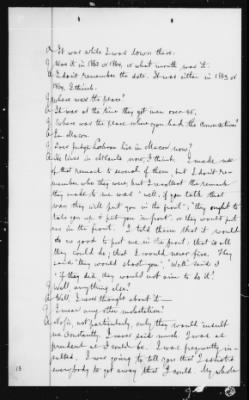 A. It was while I was down there.
Q. Was it in 1863 or 1864, or what month was it?
A. I don't remember the date. It was either in 1863 or
1864, I think.
Q. Where was the place?
A. It was at the time they got men over 45.
Q. Where was the place where you had the conversation?
A. In Macon.
Q. Does judge live in Macon now?
A. He lives in Atlanta now, I think. I made
of that remark to several of them, but I don't re-
member who they were; but I recollect the remark
they made to me was "well, if you talk that
way they will put you in the front;" "they ought to
take you up & put you in front", or they would put
me in the front. I told them that it would
do no good to put me in the front; that is all
they could do; that I would never fire. They
said "they would shoot you." "Well" said I
"if they did they would not aim to do it."
Q. Well, anything else?
A. Well, I never thought about it—
Q. I mean any other molestation?
A. No sir, not particularly, only they would insult
me constantly. I never said much. I was as
prudent as I could be. I was frequently in-
sulted. I was going to tell you that I advised
everybody to get away that I could. My whole
13